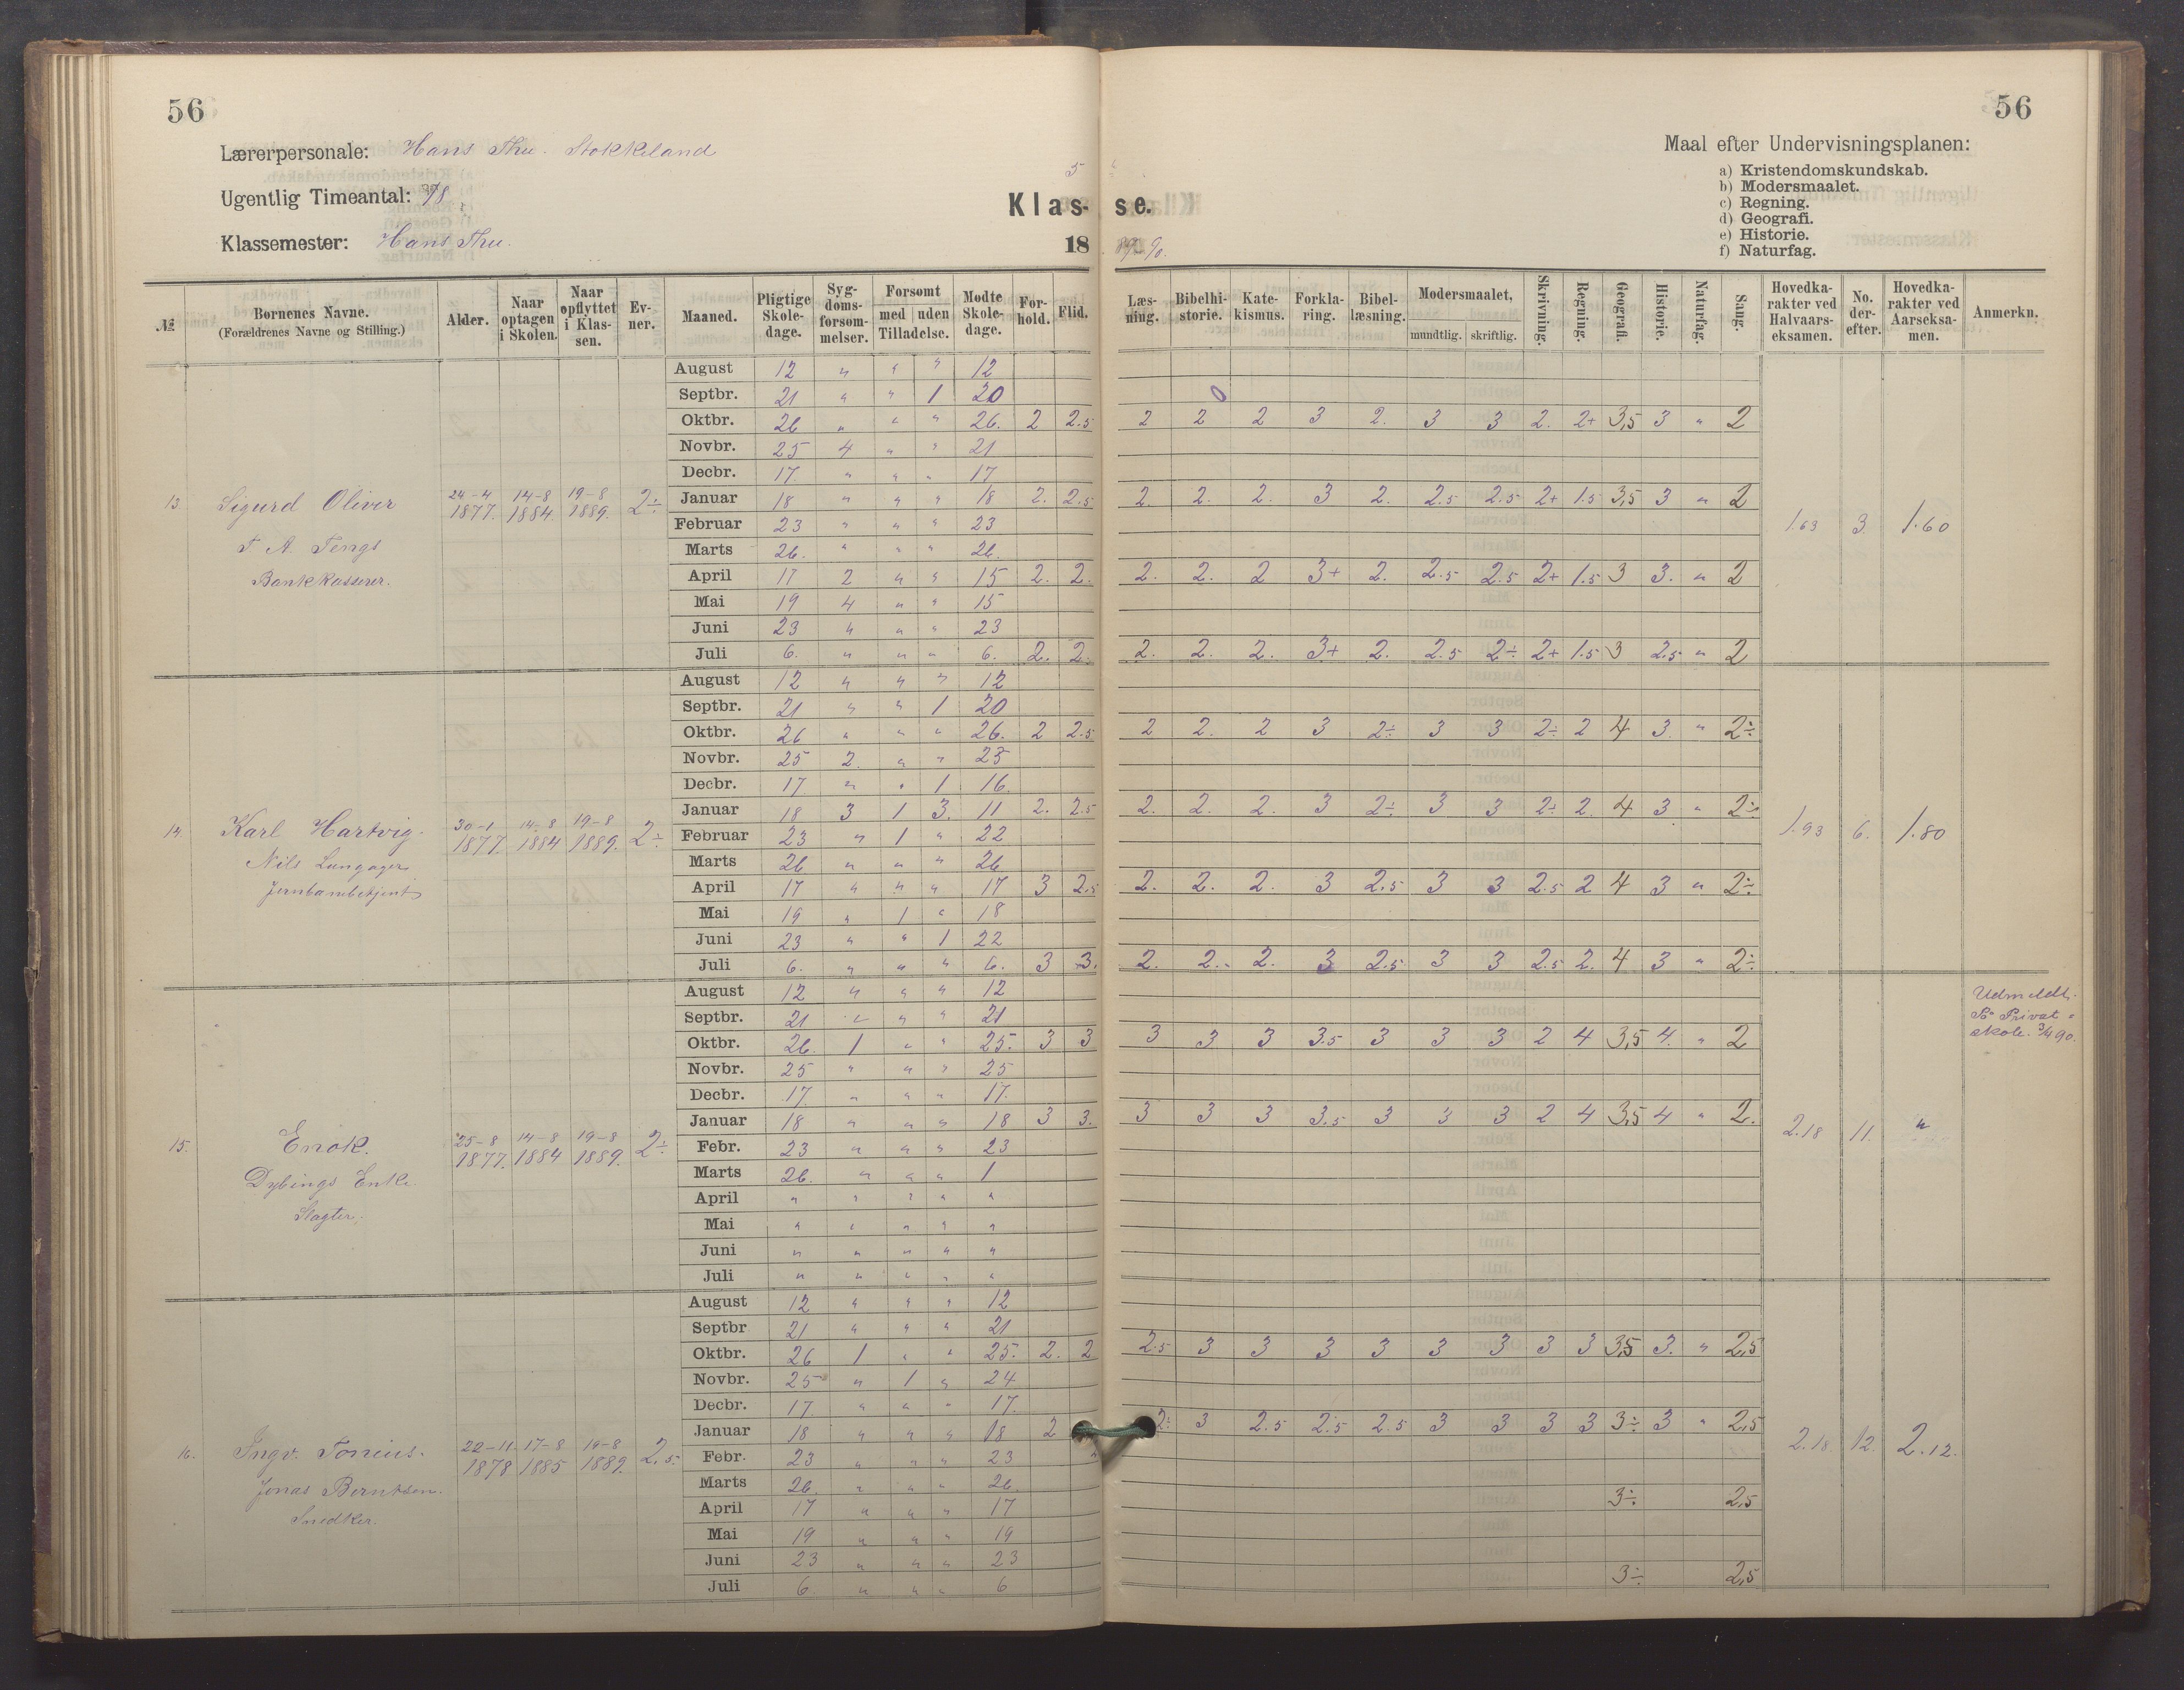 56
56
Lærerpersonale: Hans Thu. Stokkeland
Ugentlig Timeantal:
Klassemester: Hans Thu.
5
Klas-se.
18 89-90.
Maal efter Undervisningsplanen:
a) Kristendomskundskab.
b) Modersmaalet.
c) Regning.
d) Geografi.
e) Historie.
f) Naturfag.
№ Børnenes Navne. (Forældrenes Navne og Stilling.) Alder. Naar optagen i Skolen. Naar opflyttet i Klassen. Ev-ner. Maaned. Pligtige Skole-dage. Syg-doms-forsøm-melser. Forsømt med uden Tilladelse. Mødte Skole-dage. For-hold. Flid. Læs-ning. Bibelhi-storie. Kate-kismus. Forkla-ring. Bibel-læsning. Modersmaalet, mundtlig. skriftlig. Skrivning. Regning. Geografi. Historie. Naturfag. Sang. Hovedka-rakter ved Halvaars-eksamen. No. der-efter. Hovedka-rakter ved Aarseksa-men. Anmerkn.
13. Sigurd Oliver
T. A. Tengs
Bankkasserer.
24-4 1877. 14-8 1884. 19-8 1889. 2÷
August 12 " " " 12
Septbr. 21 " " 1 20 0
Oktbr. 26 " " " 26. 2 2.5 2 2 2 3 2. 3 3 2. 2+ 3,5 3 " 2
Novbr. 25 4 " " 21
Decbr. 17. " " " 17
Januar 18 " " " 18 2. 2.5 2. 2. 2. 3 2. 2.5 2.5 2+ 1.5 3,5 3 " 2
Februar 23 " " " 23
Marts 26. " " " 26.
April 17 2 " " 15 2. 2. 2. 2. 2 3+ 2. 2.5 2.5 2+ 1.5 3 3. " 2
Mai 19 4 " " 15
Juni 23 " " " 23
Juli 6. " " " 6. 2. 2. 2. 2. 2. 3+ 2. 2.5 2÷ 2+ 1.5 3 2.5 " 2
1.63 3. 1.60
14. Karl Hartvig.
Nils Lungager
Jernbanebetjent
30-1 1877. 14-8 1884 19-8 1889. 2÷
August 12 " " " 12
Septbr. 21 " " 1 20
Oktbr. 26 " " " 26. 2 2.5 2 2. 2 3 2÷ 3 3 2÷ 2 4 3. " 2÷
Novbr. 25 2. " " 23
Decbr. 17 " " 1 16.
Januar 18 3 1 3. 11 2. 2.5 2. 2. 2. 3 2÷ 3 3 2÷ 2. 4 3 " 2÷
Februar 23 " 1 " 22
Marts 26 " " " 26
April 17 " " " 17 3 2.5 2. 2. 2. 3 2.5 3 3 2.5 2 4 3 " 2÷
Mai 19 " 1 " 18
Juni 23 " " 1 22
Juli 6. " " " 6. 3 3. 2. 2. 2. 3 2.5 3 3 2.5 2. 4 3 " 2÷
1.93 6. 1.80
15. Enok.
Dybings Enke.
Slagter.
25-8 1877. 14-8 1884 19-8 1889. 2÷
August 12 " " " 12
Septbr. 21 " " " 21
Oktbr. 26. 1 " " 25. 3 3 3 3 3 3.5 3 3 3 2 4 3,5 4. " 2
Novbr. 25 " " " 25
Decbr. 17. " " " 17.
Januar 18 " " " 18 3 3. 3 3 3 3.5 3 3 3 2 4 3,5 4 " 2.
Febr. 23 " " " 23
Marts 26. " " " 1
April " " " " "
Mai " " " " "
Juni " " " " "
Juli " " " " "
2.18 11. "
Udmeldt.
Privat
skole. 3/4 90.
16. Ingv. Tonius.
Jonas Berntsen.
Snedker.
22-11 1878 17-8 1885 19-8 1889. 2.5.
August 12 " " " 12
Septbr 21 " " " 21
Oktbr. 26 1 " " 25. 2. 2 2.5 3 3 3 3 3 3 3 3 3,5 3. " 2,5
Novbr. 25 " 1 " 24
Decbr. 17. " " " 17.
Januar 18 " " " 18 2 2÷ 3 2.5 2.5 2.5 3 3 3 3 3÷ 3 " 2,5
Febr. 23 " " " 23
Marts 26. " " " 26.
April 17 " " " 17 3÷ 2,5
Mai 19 " " " 19
Juni 23 " " " 23
Juli 6. " " " 6 3÷ 2,5
2.18. 12. 2.12.